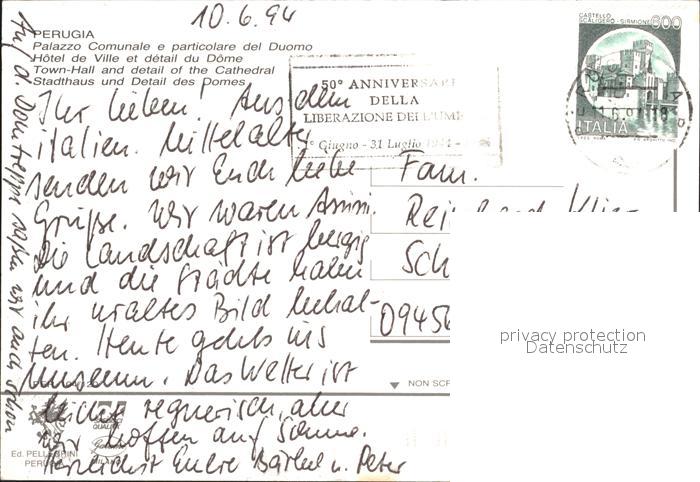 10.6.94
PERUGIA
Palazzo Comunale e particolare del Duomo
Hôtel de Ville et détail du Dôme
Town-Hall and detail of the Cathedral
Stadthaus und Detail des Domes
CASTELLO
SCALIGERO - SIRMIONE 600
ITALIA
50° ANNIVERSARI
DELLA
LIBERAZIONE DELL'UM
Giugno - 31 Luglio
Ihr Lieben! Aus dem
italien. Mittelalter
senden wir Euch liebe
Grüße. Wir waren Assisi.
Die Landschaft ist bergig
und die Städte haben
ihr uraltes Bild behal-
ten. Heute gehts ins
Museum. Das Wetter ist
leicht regnerisch, aber
wir hoffen auf Sonne.
Herzlichst Eure Bärbel u. Peter
Auf d. Domtreppe saßen wir auch schon
Fam.
Sch
09456
NON SCR
Ed. PELLEGRINI
PERUGIA
MILANO
privacy protection
Datenschutz